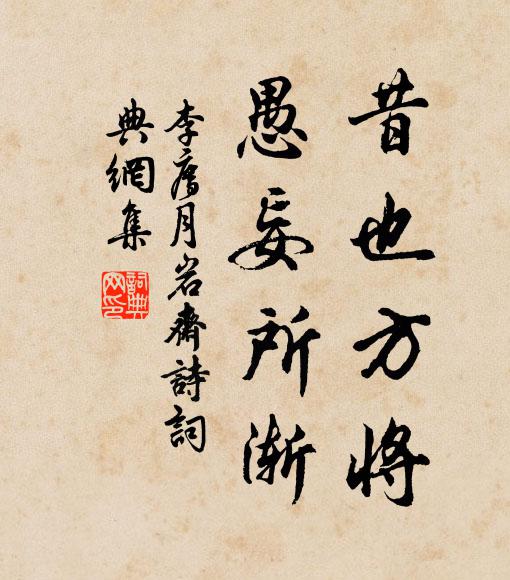 昔也方將
愚妄所漸
李廌月岩齋詩詞
典網集
詞典
网印